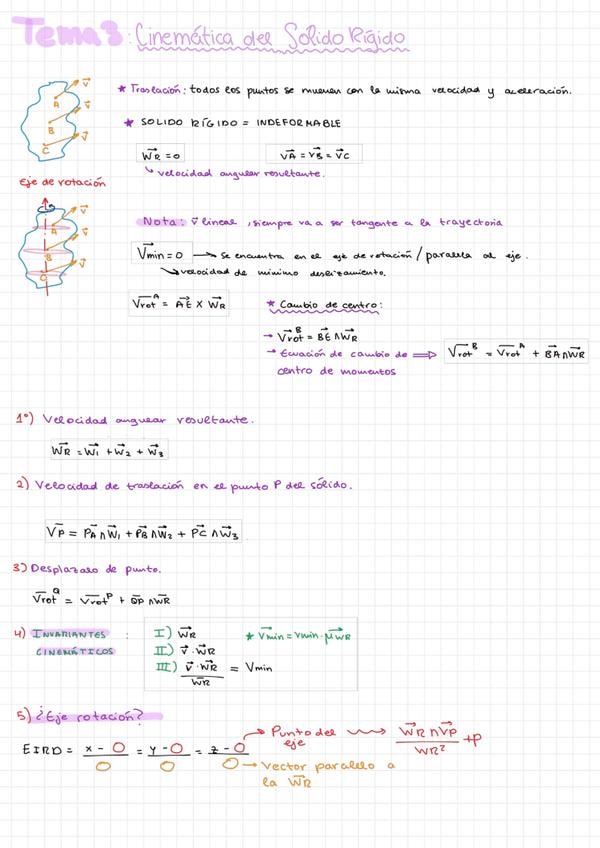 Tema 3: Cinemática del Solido Rígido
A
B
C
v⃗
v⃗
v⃗
★ Traslación: todos los puntos se mueven con la misma velocidad y aceleración.
★ SOLIDO RÍGIDO = INDEFORMABLE
W⃗R = 0
v⃗A = v⃗B = v⃗C
↳ velocidad angular resultante.
Eje de rotación
A
B
C
v⃗
v⃗
v⃗
Nota: v⃗ lineal, siempre va a ser tangente a la trayectoria
V⃗min = 0 → Se encuentra en el eje de rotación / paralela al eje.
↘ velocidad de mínimo deslizamiento.
V⃗rot^A = A⃗E x W⃗R
★ Cambio de centro:
→ V⃗rot^B = B⃗E ∧ W⃗R
→ Ecuación de cambio de ⟹ V⃗rot^B = V⃗rot^A + B⃗A ∧ W⃗R
centro de momentos
1º) Velocidad angular resultante.
W⃗R = W⃗1 + W⃗2 + W⃗3
2) Velocidad de traslación en el punto P del sólido.
V⃗P = P⃗A ∧ W⃗1 + P⃗B ∧ W⃗2 + P⃗C ∧ W⃗3
3) Desplazaro de punto.
V⃗rot^Q = V⃗rot^P + Q⃗P ∧ W⃗R
4) INVARIANTES :
CINEMÁTICOS
I) W⃗R
★ V⃗min = Vmin · μ⃗WR
II) v⃗ · W⃗R
III) v⃗ · W⃗R / WR = Vmin
5) ¿Eje rotación?
EIRD = x - O / O = y - O / O = z - O / O
→ Punto del eje ⟿ W⃗R ∧ V⃗P / WR² + P
→ Vector paralelo a
la W⃗R